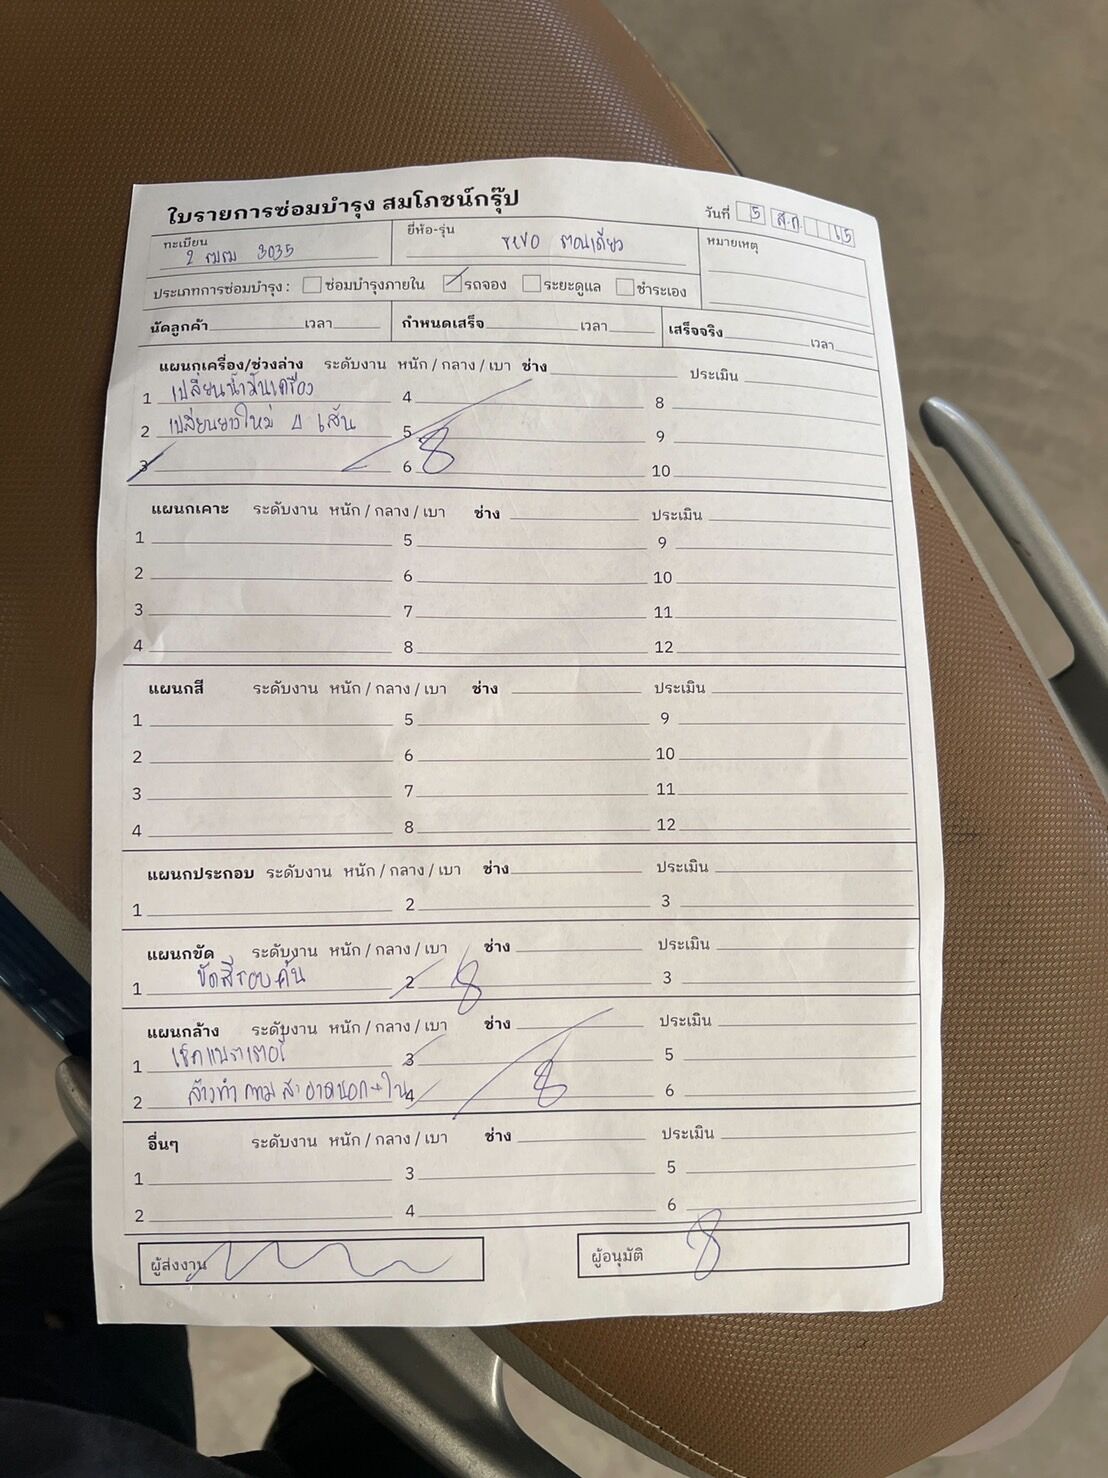 ใบรายการซ่อมบำรุง สมโภชน์กรุ๊ป
วันที่ 5 ส.ค. 65
ทะเบียน 2 ฒฒ 3035
ยี่ห้อ-รุ่น revo ตอนเดียว
หมายเหตุ
ประเภทการซ่อมบำรุง : ซ่อมบำรุงภายใน รถจอง ระยะดูแล ชำระเอง
นัดลูกค้า เวลา กำหนดเสร็จ เวลา เสร็จจริง เวลา
แผนกเครื่อง/ช่วงล่าง ระดับงาน หนัก / กลาง / เบา ช่าง ประเมิน
1 เปลี่ยนน้ำมันเครื่อง 4 8
2 เปลี่ยนยางใหม่ 4 เส้น 5 9
3 6 10
แผนกเคาะ ระดับงาน หนัก / กลาง / เบา ช่าง ประเมิน
1 5 9
2 6 10
3 7 11
4 8 12
แผนกสี ระดับงาน หนัก / กลาง / เบา ช่าง ประเมิน
1 5 9
2 6 10
3 7 11
4 8 12
แผนกประกอบ ระดับงาน หนัก / กลาง / เบา ช่าง ประเมิน
1 2 3
แผนกขัด ระดับงาน หนัก / กลาง / เบา ช่าง ประเมิน
1 ขัดสีรอบคัน 2 3
แผนกล้าง ระดับงาน หนัก / กลาง / เบา ช่าง ประเมิน
1 เช็คแบตเตอรี่ 3 5
2 ล้างทำความสะอาดนอก+ใน 4 6
อื่นๆ ระดับงาน หนัก / กลาง / เบา ช่าง ประเมิน
1 3 5
2 4 6
ผู้ส่งงาน
ผู้อนุมัติ